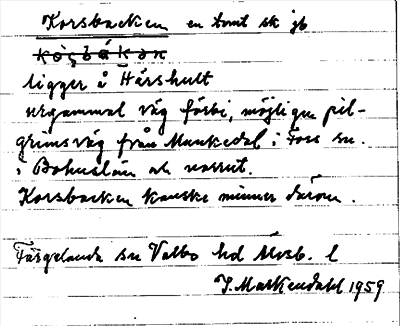 Korsbacken en tomt sk jb
kòṣbákan
ligger å Hårshult
urgammal väg förbi, möjligen pil-
grimsväg från Munkedal i Foss sn.
i Bohuslän och norrut.
Korsbacken kanske minner därom.
Färgelanda sn Valbo hd Älvsb. l
J. Markendahl 1959